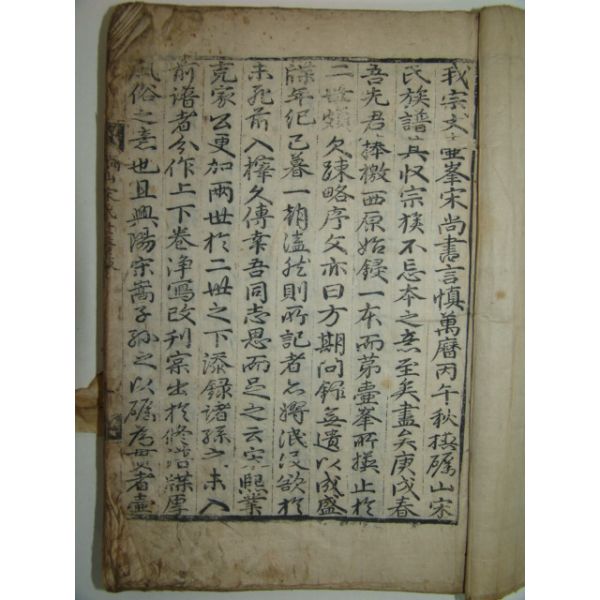 我宗丈壺峯宋尚書言愼萬曆丙午秋撰礪山宋
氏族譜其收宗族不忘本之意至矣盡矣庚戌春
吾先君捧檄西原始錄一本而第壺峯所撰止於
二世頗欠疎略序文亦曰方期問錄無遺以成盛
牒年紀已暮一朝溘然則所記者亦將泯沒欲於
未死前入梓久傳幸吾同志思而足之云宋熙業
克家公更加兩世於二世之下添錄諸孫之未入
前譜者分作上下卷淨寫改刊寔出於修譜牒厚
風俗之意也且興陽宋萬子孫之以礪爲貫者壺
山宋氏